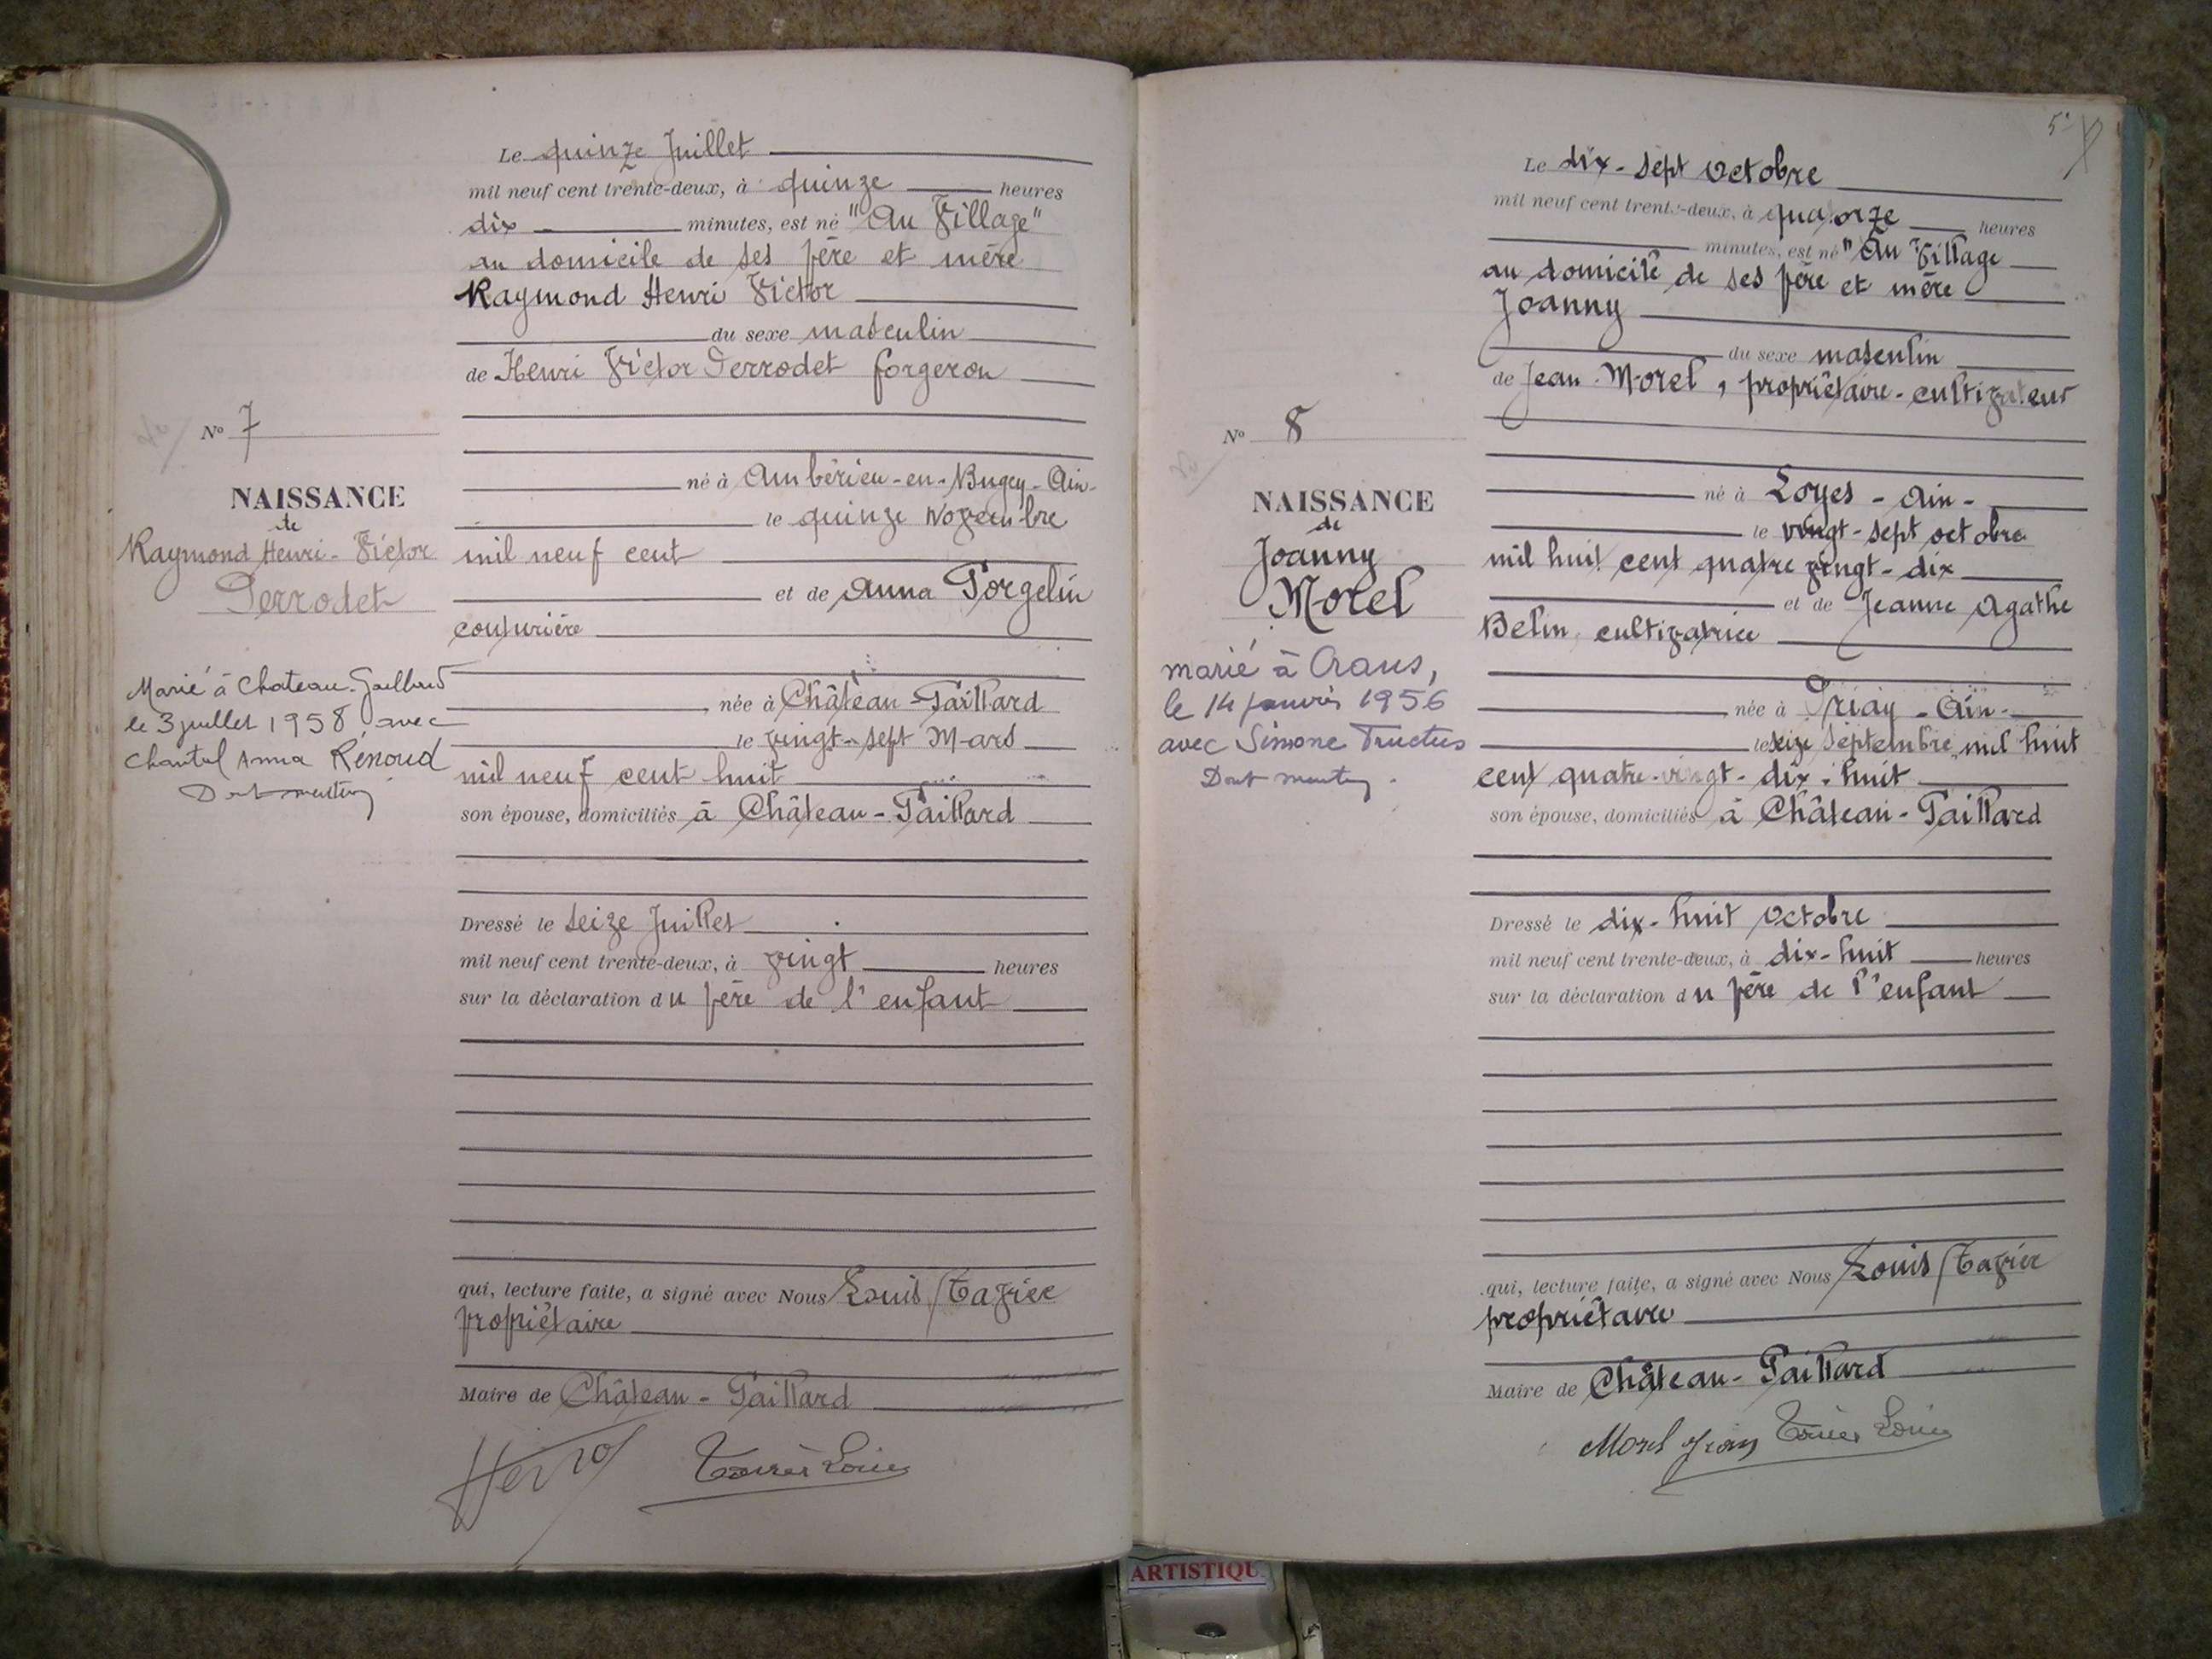 Le quinze Juillet
mil neuf cent trente-deux, à quinze heures
dix minutes, est né "Au Village"
au domicile de ses père et mère
Raymond Henri Victor
du sexe masculin
de Henri Victor Perrodet forgeron
né à Ambérieu-en-Bugey-Ain-
le quinze Novembre
mil neuf cent
et de Anna Gorgelin
couturière
née à Château-Gaillard
le vingt-sept Mars
mil neuf cent huit
son épouse, domiciliés à Château-Gaillard
Dressé le seize Juillet
mil neuf cent trente-deux, à vingt heures
sur la déclaration du père de l'enfant
qui, lecture faite, a signé avec Nous Louis Tavier
propriétaire
Maire de Château-Gaillard
Tavier Louis
N° 7
NAISSANCE
de
Raymond Henri-Victor
Perrodet
Marié à Chateau-Gaillard
le 3 juillet 1958, avec
Chantal Anna Renoud
Dont mention
5
Le dix-sept octobre
mil neuf cent trente-deux, à quatorze heures
minutes, est né "Au Village
au domicile de ses père et mère
Joanny
du sexe masculin
de Jean Morel, propriétaire-cultivateur
né à Loyes-Ain-
le vingt-sept octobre
mil huit cent quatre vingt-dix
et de Jeanne Agathe
Belin, cultivatrice
née à Priay-Ain-
le seize Septembre mil huit
cent quatre-vingt-dix-huit
son épouse, domiciliés à Château-Gaillard
Dressé le dix-huit octobre
mil neuf cent trente-deux, à dix-huit heures
sur la déclaration du père de l'enfant
qui, lecture faite, a signé avec Nous Louis Tavier
propriétaire
Maire de Château-Gaillard
Morel Jean Tavier Louis
N° 8
NAISSANCE
de
Joanny
Morel
marié à Crans,
le 14 janvier 1956
avec Simone Tructus
Dont mention.
ARTISTIQU